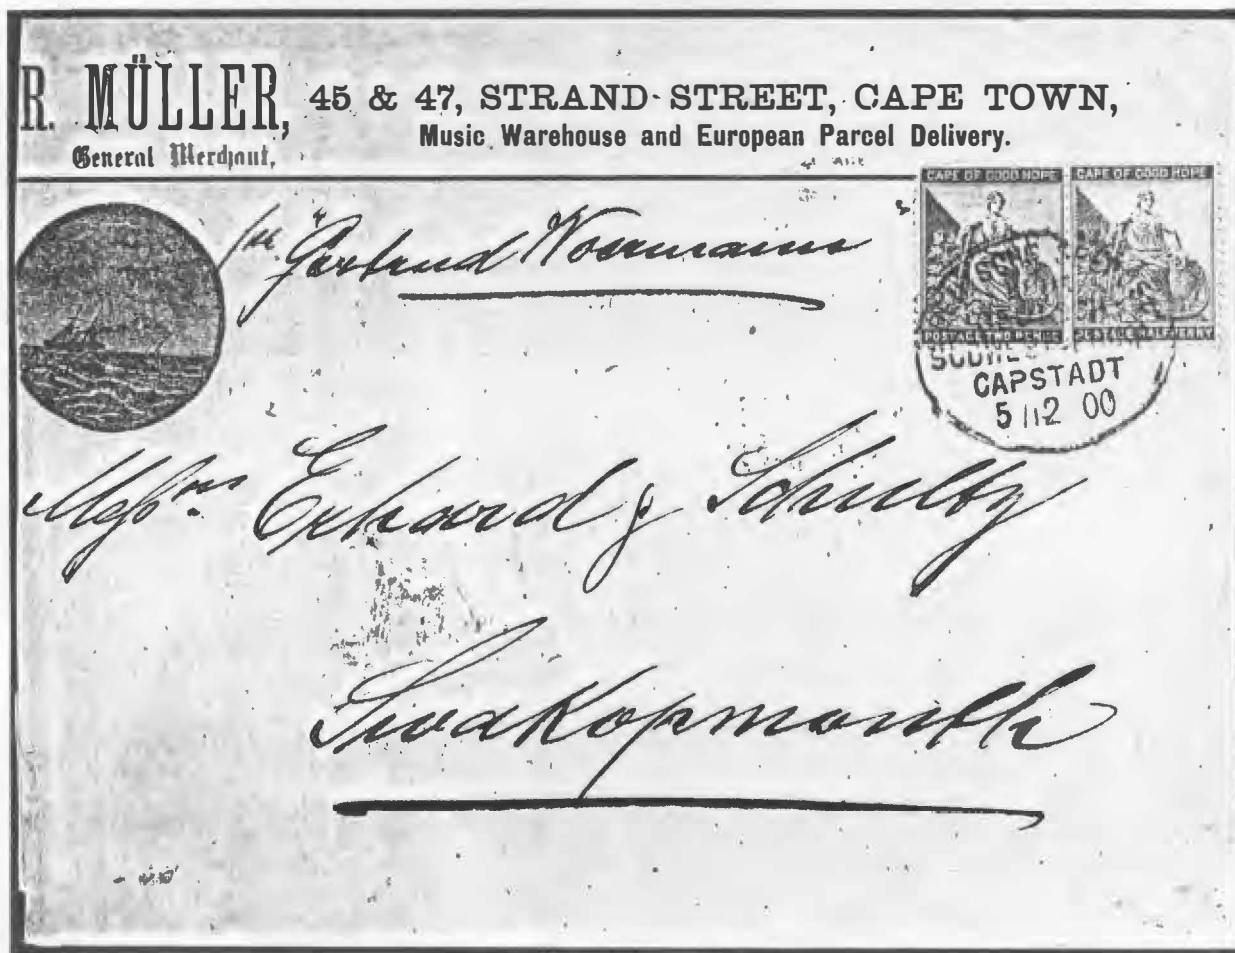 R. MÜLLER, 45 & 47, STRAND STREET, CAPE TOWN,
General Merchant, Music Warehouse and European Parcel Delivery.
CAPE OF GOOD HOPE CAPE OF GOOD HOPE
per "Gertrud Woermann
POSTAGE TWO PENCE POSTAGE HALFPENNY
CAPSTADT
5/12 00
Messrs. Erhard & Schultz
Swakopmouth